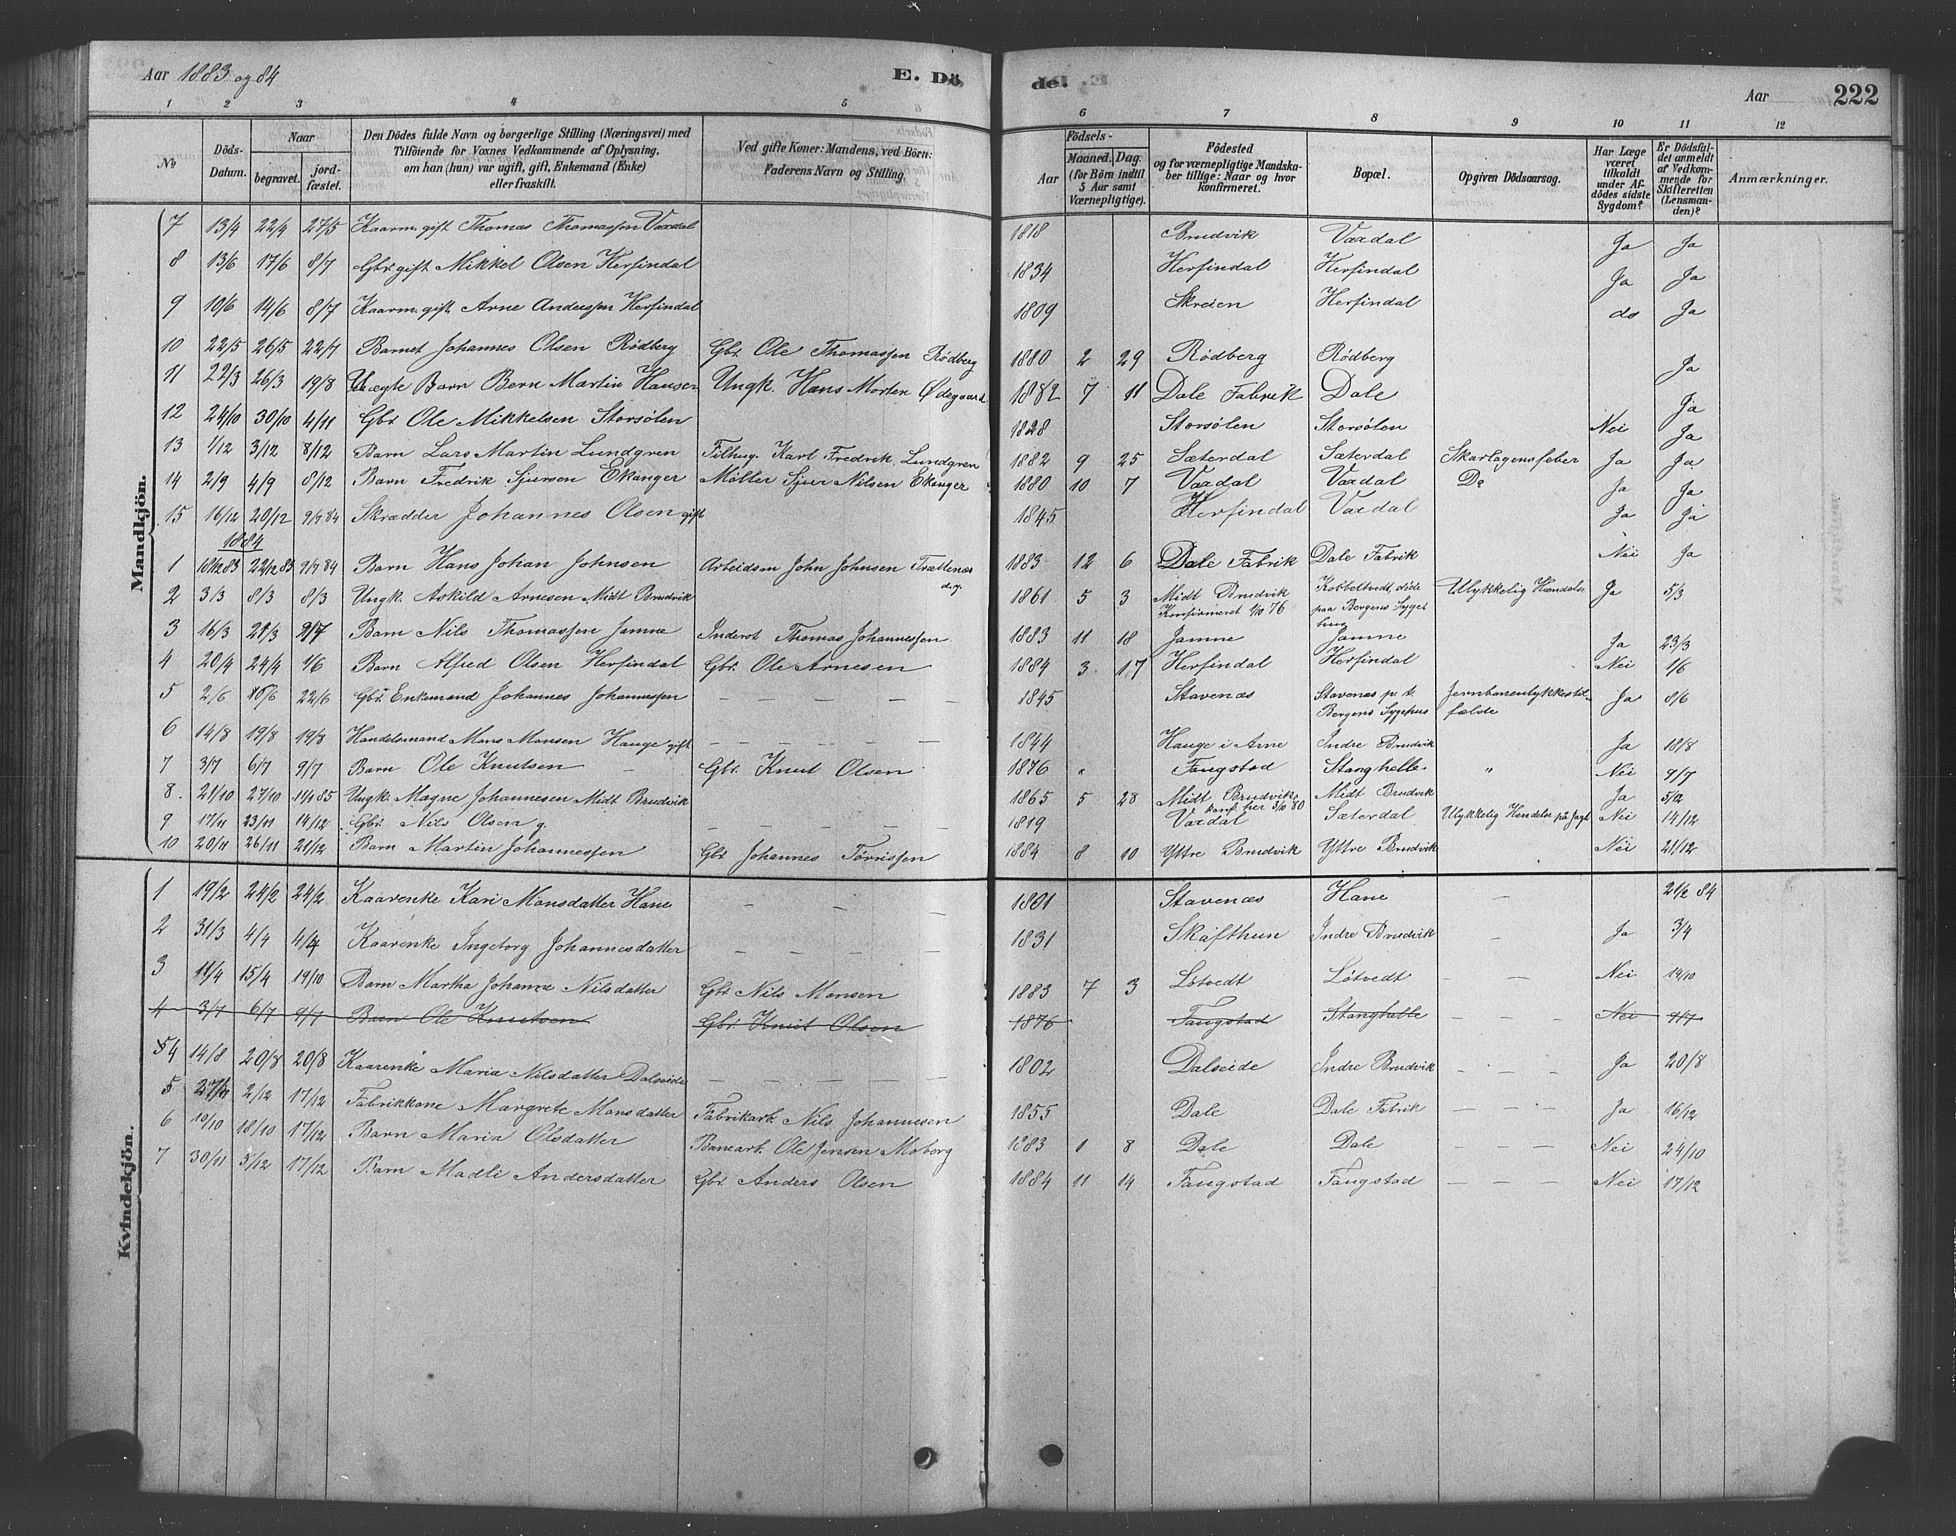 Aar 1883 og 84 E. Dö de. E. Aar 222
1 2 3 4 5 6 7 8 9 10 11 12
No Döds-Datum. Naar begravet. jordfæstet. Den Dödes fulde Navn og borgerlige Stilling (Næringsvei) med Tilföiende for Voxnes Vedkommende af Oplysning, om han (hun) var ugift, gift, Enkemand (Enke) eller fraskilt. Ved gifte Koner: Mandens, ved Börn: Faderens Navn og Stilling. Födsels- Aar Maaned. Dag. (for Börn indtil 5 Aar samt Værnepligtige). Födested og for værnepligtige Mandskaber tillige: Naar og hvor konfirmeret. Bopæl. Opgiven Dödsaarsag. Har Læge været tilkaldt under Afdödes sidste Sygdom? Er Dödsfaldet anmeldt af Vedkommende for Skifteretten (Lensmanden)? Anmærkninger.
Mandkjön.
7 13/4 22/4 27/5 Kaarm. gift Thomas Thomassen Vaxdal 1818 Brudvik Vaxdal Ja Ja
8 13/6 17/6 8/7 Gbr. gift Mikkel Olsen Herfindal 1834 Herfindal Herfindal Ja Ja
9 10/6 14/6 8/7 Kaarm. gift Arne Anderssen Herfindal 1809 Skreien Herfindal do Ja
10 22/5 26/5 22/7 Barnet Johannes Olsen Rødberg Gbr. Ole Thomassen Rødberg 1880 2 29 Rødberg Rødberg Ja
11 22/3 26/3 19/8 Uægte Barn Bern Martin Hansen Ungk. Hans Morten Ødegaard 1882 7 11 Dale Fabrik Dale Ja
12 24/10 30/10 4/11 Gbr. Ole Mikkelsen Storsølen 1828 Storsølen Storsølen Nei Ja
13 1/12 3/12 8/12 Barn Lars Martin Lundgren Tilhug. Karl Fredrik Lundgren 1882 9 25 Sæterdal Sæterdal Skarlagensfeber Ja Ja
14 2/9 4/9 8/12 Barn Fredrik Sjursen Ekanger Møller Sjur Nilsen Ekanger 1880 10 7 Vaxdal Vaxdal Do Ja Ja
15 16/12 20/12 9/7 84 Skrædder Johannes Olsen gift 1845 Herfindal Vaxdal Ja Ja
1884
1 18/12 83 22/12 83 9/7 84 Barn Hans Johan Johnsen Arbeidsm John Johnsen Trættenes 1883 12 6 Dale Fabrik Dale Fabrik Nei Ja
2 3/3 8/3 8/3 Ungk. Askild Arnesen Midt Brudvik 1861 5 3 Midt Brudvik Konfirmeret 1/10 76 Kobbeltvedt, døde paa Bergens Sygehus Ulykkelig Hændelse Ja 5/3
3 16/3 21/3 9/7 Barn Nils Thomassen Jamne Inderst Thomas Johannessen 1883 11 18 Jamne Jamne Ja 23/3
4 20/4 24/4 1/6 Barn Alfred Olsen Herfindal Gbr. Ole Arnesen 1884 3 17 Herfindal Herfindal Nei 1/6
5 2/6 16/6 22/6 Gbr Enkemand Johannes Johannessen — — — — 1845 Stavenæs Stavenæs p. t. Bergens Sygehus Jernbaneulykkestilfælde Ja 8/6
6 14/8 19/8 19/8 Handelsmand Mons Monsen Hauge gift — — — — 1844 Hauge i Arne Indre Brudvik Ja 18/8
7 3/7 6/7 9/7 Barn Ole Knutsen — Gbr. Knut Olsen 1876 " Faugstad Stanghelle " Nei 9/7
8. 21/10 27/10 11/1 85 Ungk. Magne Johannesen Midt Brudvik 1865 5 28 Midt Brudvik, konf. her 3/10 80 Midt Brudvik Ja 5/12
9 17/11 23/11 14/12 Gbr. Nils Olsen g. — — — — — 1819 Vaxdal Sæterdal Ulykkelig Hendelse på Jagt Nei 14/12
10 20/11 26/11 21/12 Barn Martin Johannessen Gbr Johannes Tørrissen 1884 8 10 Yttre Brudvik Yttre Brudvik Nei 21/12
Kvindekjön.
1 19/2 24/2 24/2 Kaarenke Kari Monsdatter Hane — — — 1801 Stavenæs Hane — 21/2 84
2 31/3 4/4 4/4 Kaarenke Ingeborg Johannesdatter — — — 1831 Skafthun Indre Brudvik — Ja 3/4
3 11/4 15/4 19/10 Barn Martha Johanne Nilsdatter Gbr Nils Monsen 1883 7 3 Løtvedt Løtvedt — — — Nei 14/10
4 3/7 6/7 9/7 Barn Ole Knutsen Gbr. Knut Olsen 1876 Faugstad Stanghelle Nei 9/7
54 14/8 20/8 20/8 Kaarenke Maria Nilsdatter Dalseide — — — — — 1802 Dalseide Indre Brudvik — — — Ja 20/8
5 27/11 2/12 17/12 Fabrikkone Margrete Monsdatter Fabrikarb. Nils Johannesen 1855 Dale Dale Fabrik — — — Ja 16/12
6 10/10 18/10 17/12 Barn Maria Olsdatter Banearb. Ole Jensen Moberg 1883 1 8 Dale Dale — — — Nei 24/10
7 30/11 5/12 17/12 Barn Madli Andersdatter Gbr. Anders Olsen 1884 11 14 Faugstad Faugstad — — — Nei 17/12